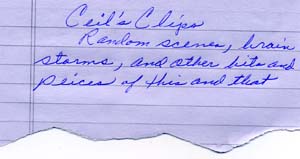 Ceil's Clips
Random scenes, brain
storms, and other bits and
peices of this and that